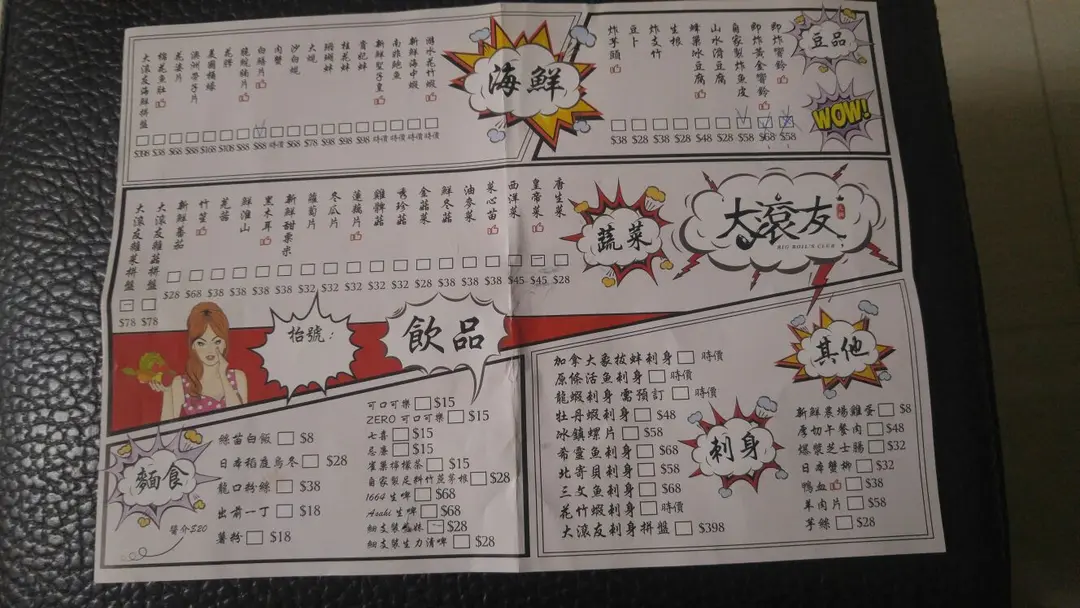 海鮮
游水花竹蝦 時價
新鮮海中蝦 時價
南非鮑魚 時價
新鮮聖子皇 時價
膏蚍蚌 $98
桂花蚌 $98
珊瑚蚌 $98
大蜆 $78
沙白蜆 $68
肉蟹 時價
白鱔片 $88
脆鯇魚片 $88
花膠 $108
美國桶蠔 $168
澳洲帶子片 $88
花婆片 $68
棉花魚肚 $38
大滾友海鮮拼盤 $398
豆品
WOW!
即炸響鈴 $58
即炸黃金響鈴 $68
自家製炸魚皮 $58
山水滑豆腐 $28
蜂巢冰豆腐 $48
生根 $28
炸支竹 $38
豆卜 $28
炸芋頭 $38
大滾友
BIG ROLL'S CLUB
蔬菜
唐生菜 $28
皇帝菜 $45
西洋菜 $45
菜心苗 $38
油麥菜 $38
鮮冬菇 $38
金菇菜 $28
秀珍菇 $32
雞髀菇 $32
蓮藕片 $32
冬瓜片 $32
蘿蔔片 $32
新鮮甜粟米 $38
黑木耳 $38
鮮淮山 $38
茸菇 $38
竹笙 $68
新鮮番茄 $28
大滾友雜菇拼盤 $78
大滾友雜菜拼盤 $78
枱號：
飲品
可口可樂 $15
ZERO 可口可樂 $15
七喜 $15
忌廉 $15
雀巢檸檬茶 $15
自家製足料竹蔗茅根 $28
1664 生啤 $68
Asahi 生啤 $68
細支裝藍妹 $28
細支裝生力清啤 $28
麵食
絲苗白飯 $8
日本稻庭烏冬 $28
龍口粉絲 $38
出前一丁 $18
薯粉 $18
醬介$20
刺身
加拿大象拔蚌刺身 時價
原條活魚刺身 時價
龍蝦刺身 需預訂 時價
牡丹蝦刺身 $48
冰鎮螺片 $58
希靈魚刺身 $68
北寄貝刺身 $58
三文魚刺身 $68
花竹蝦刺身 時價
大滾友刺身拼盤 $398
其他
新鮮農場雞蛋 $8
厚切午餐肉 $48
爆漿芝士腸 $32
日本蟹柳 $32
鴨血 $38
羊肉片 $58
芋絲 $28